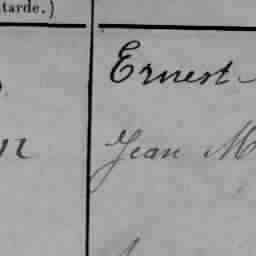 tarde.)
Ernest
Jean M